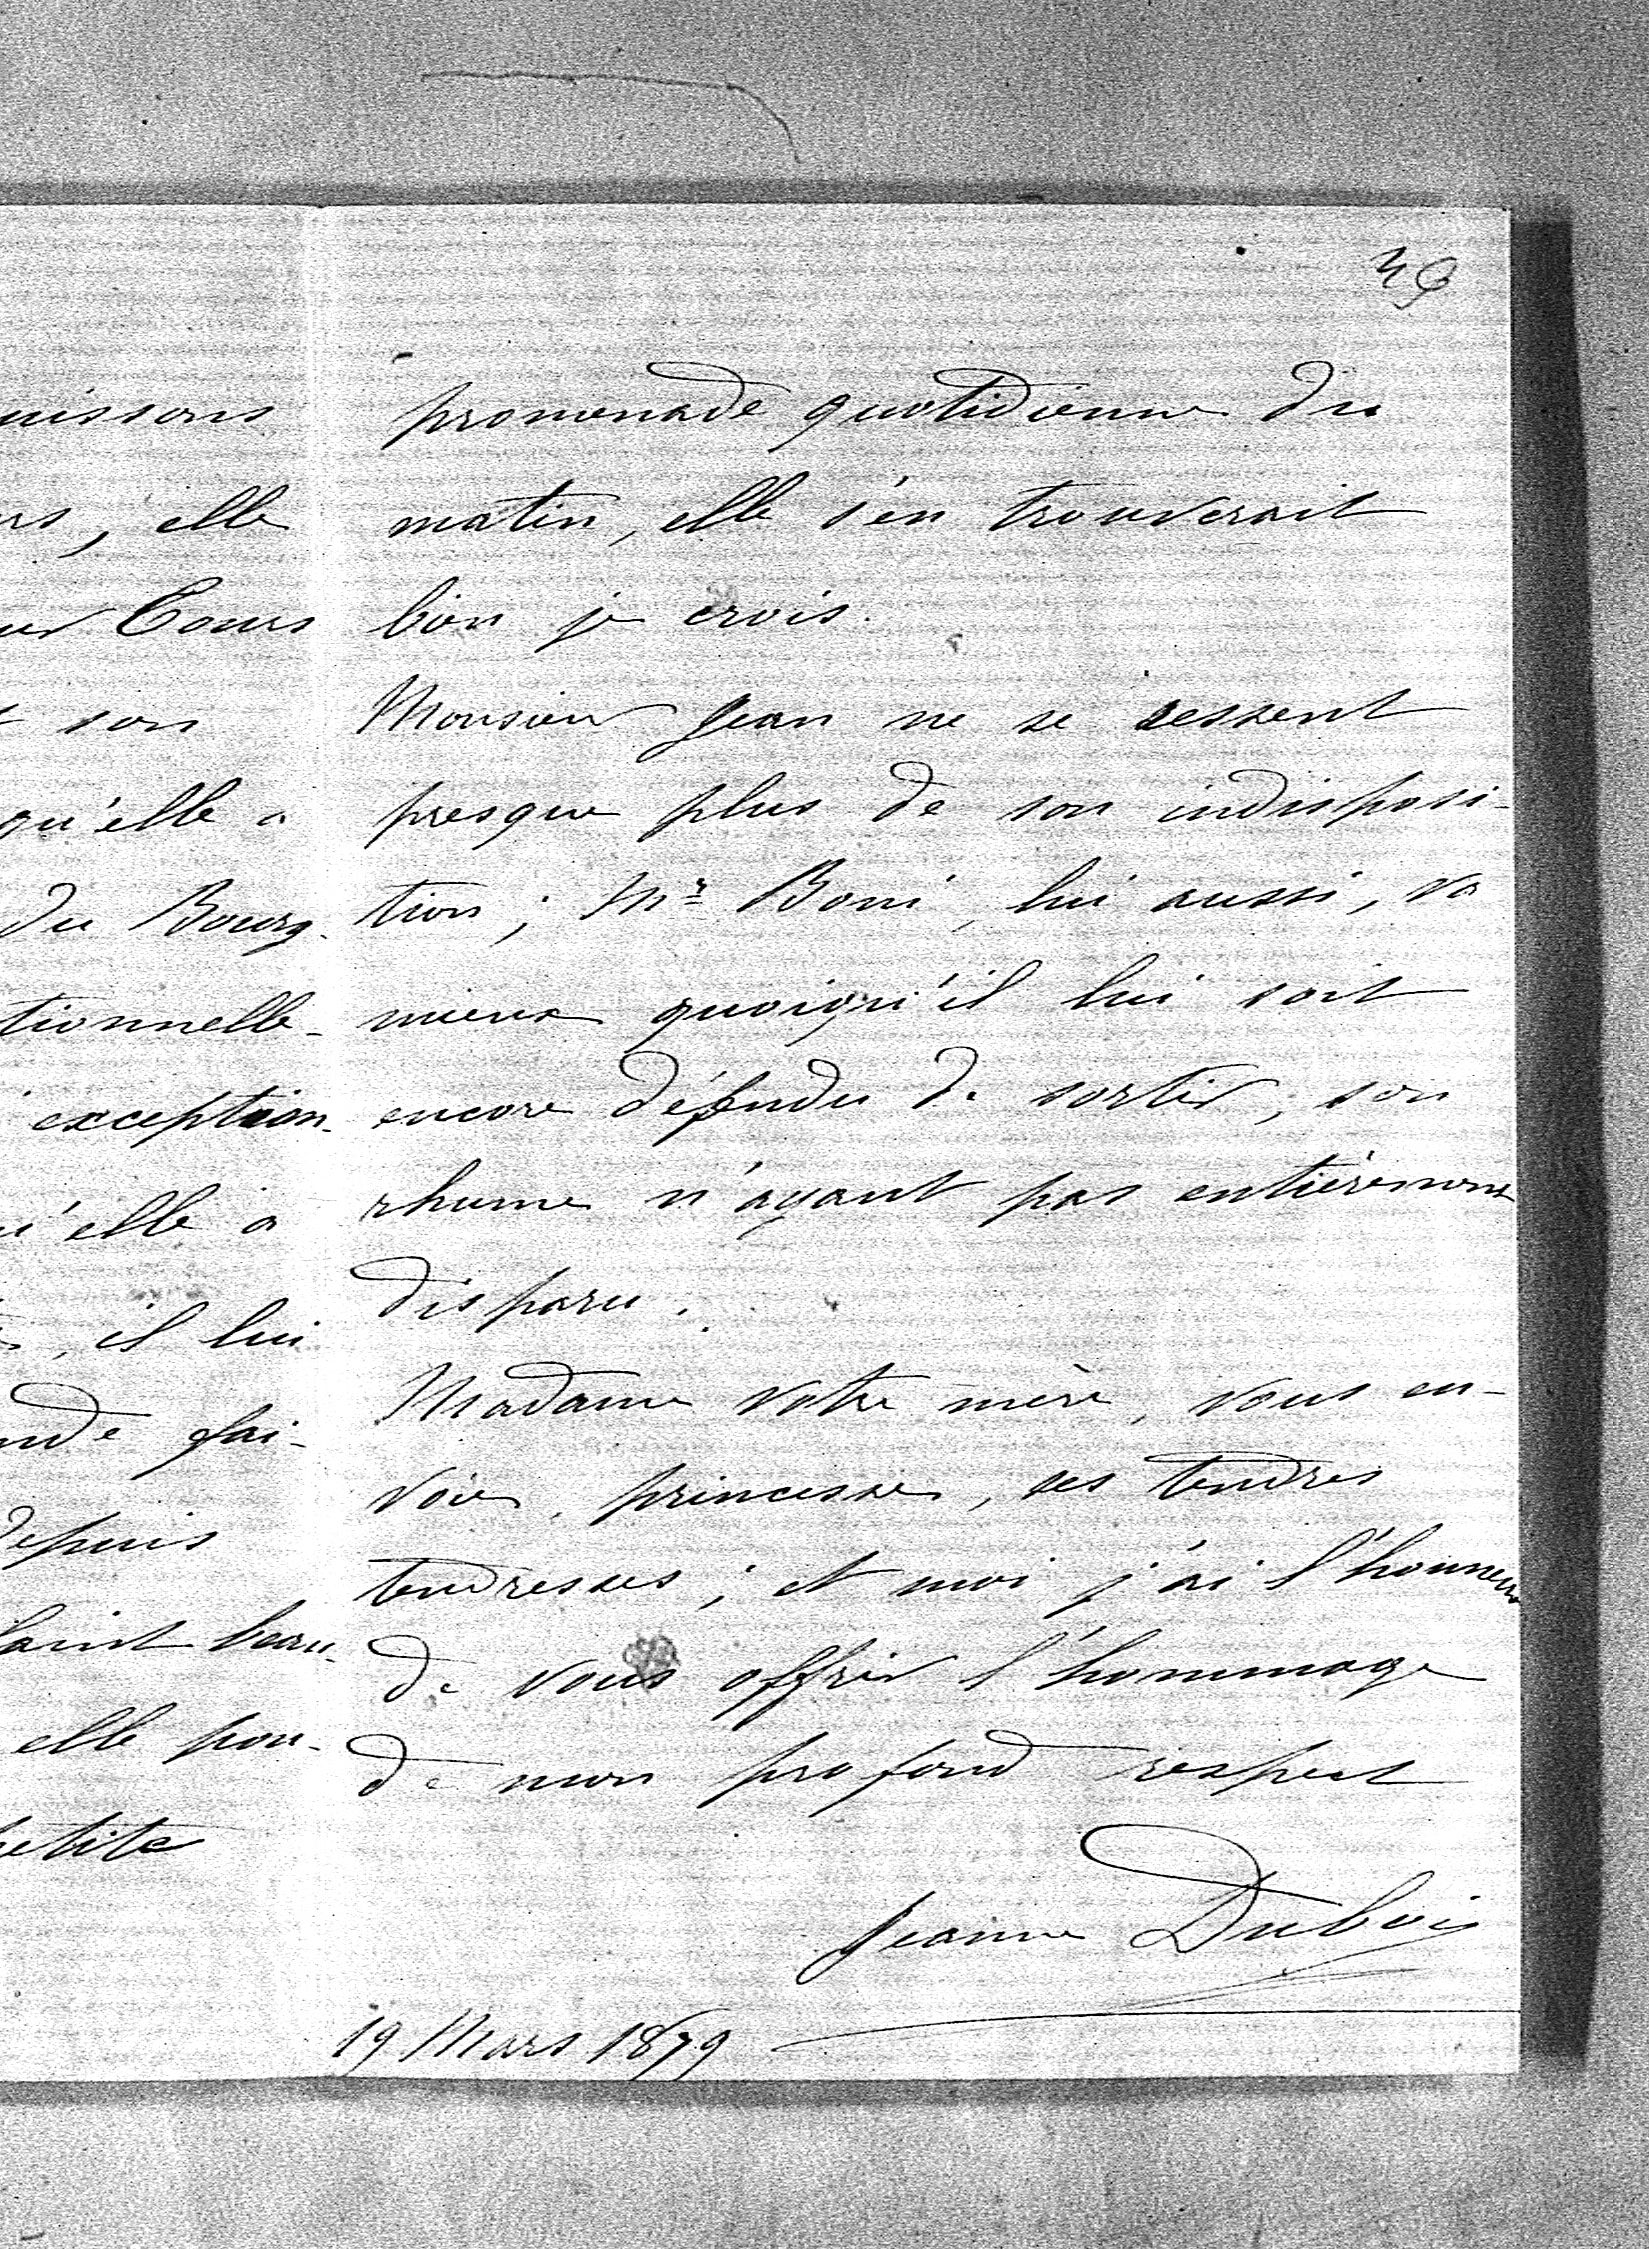 uissons
rs, elle
Cours
son
qu'elle a
du Bourg-
tionnelle-
exception-
u'elle a
, il lui
nde fai-
depuis
beau-
elle pou-
petite
39
promenade quotidienne du
matin, elle s'en trouverait
bien je crois.
Monsieur Jean ne se ressent
presque plus de son indisposi-
tion ; Mr Boni, lui aussi, va
mieux quoiqu'il lui soit
encore défendu de sortir, son
rhume n'ayant pas entièrement
disparu.
Madame votre mère, vous en-
voie, princesse, ses tendres
tendresses ; et moi j'ai l'honneur
de vous offrir l'hommage
de mon profond respect
Jeanne Dubois
19 Mars 1879